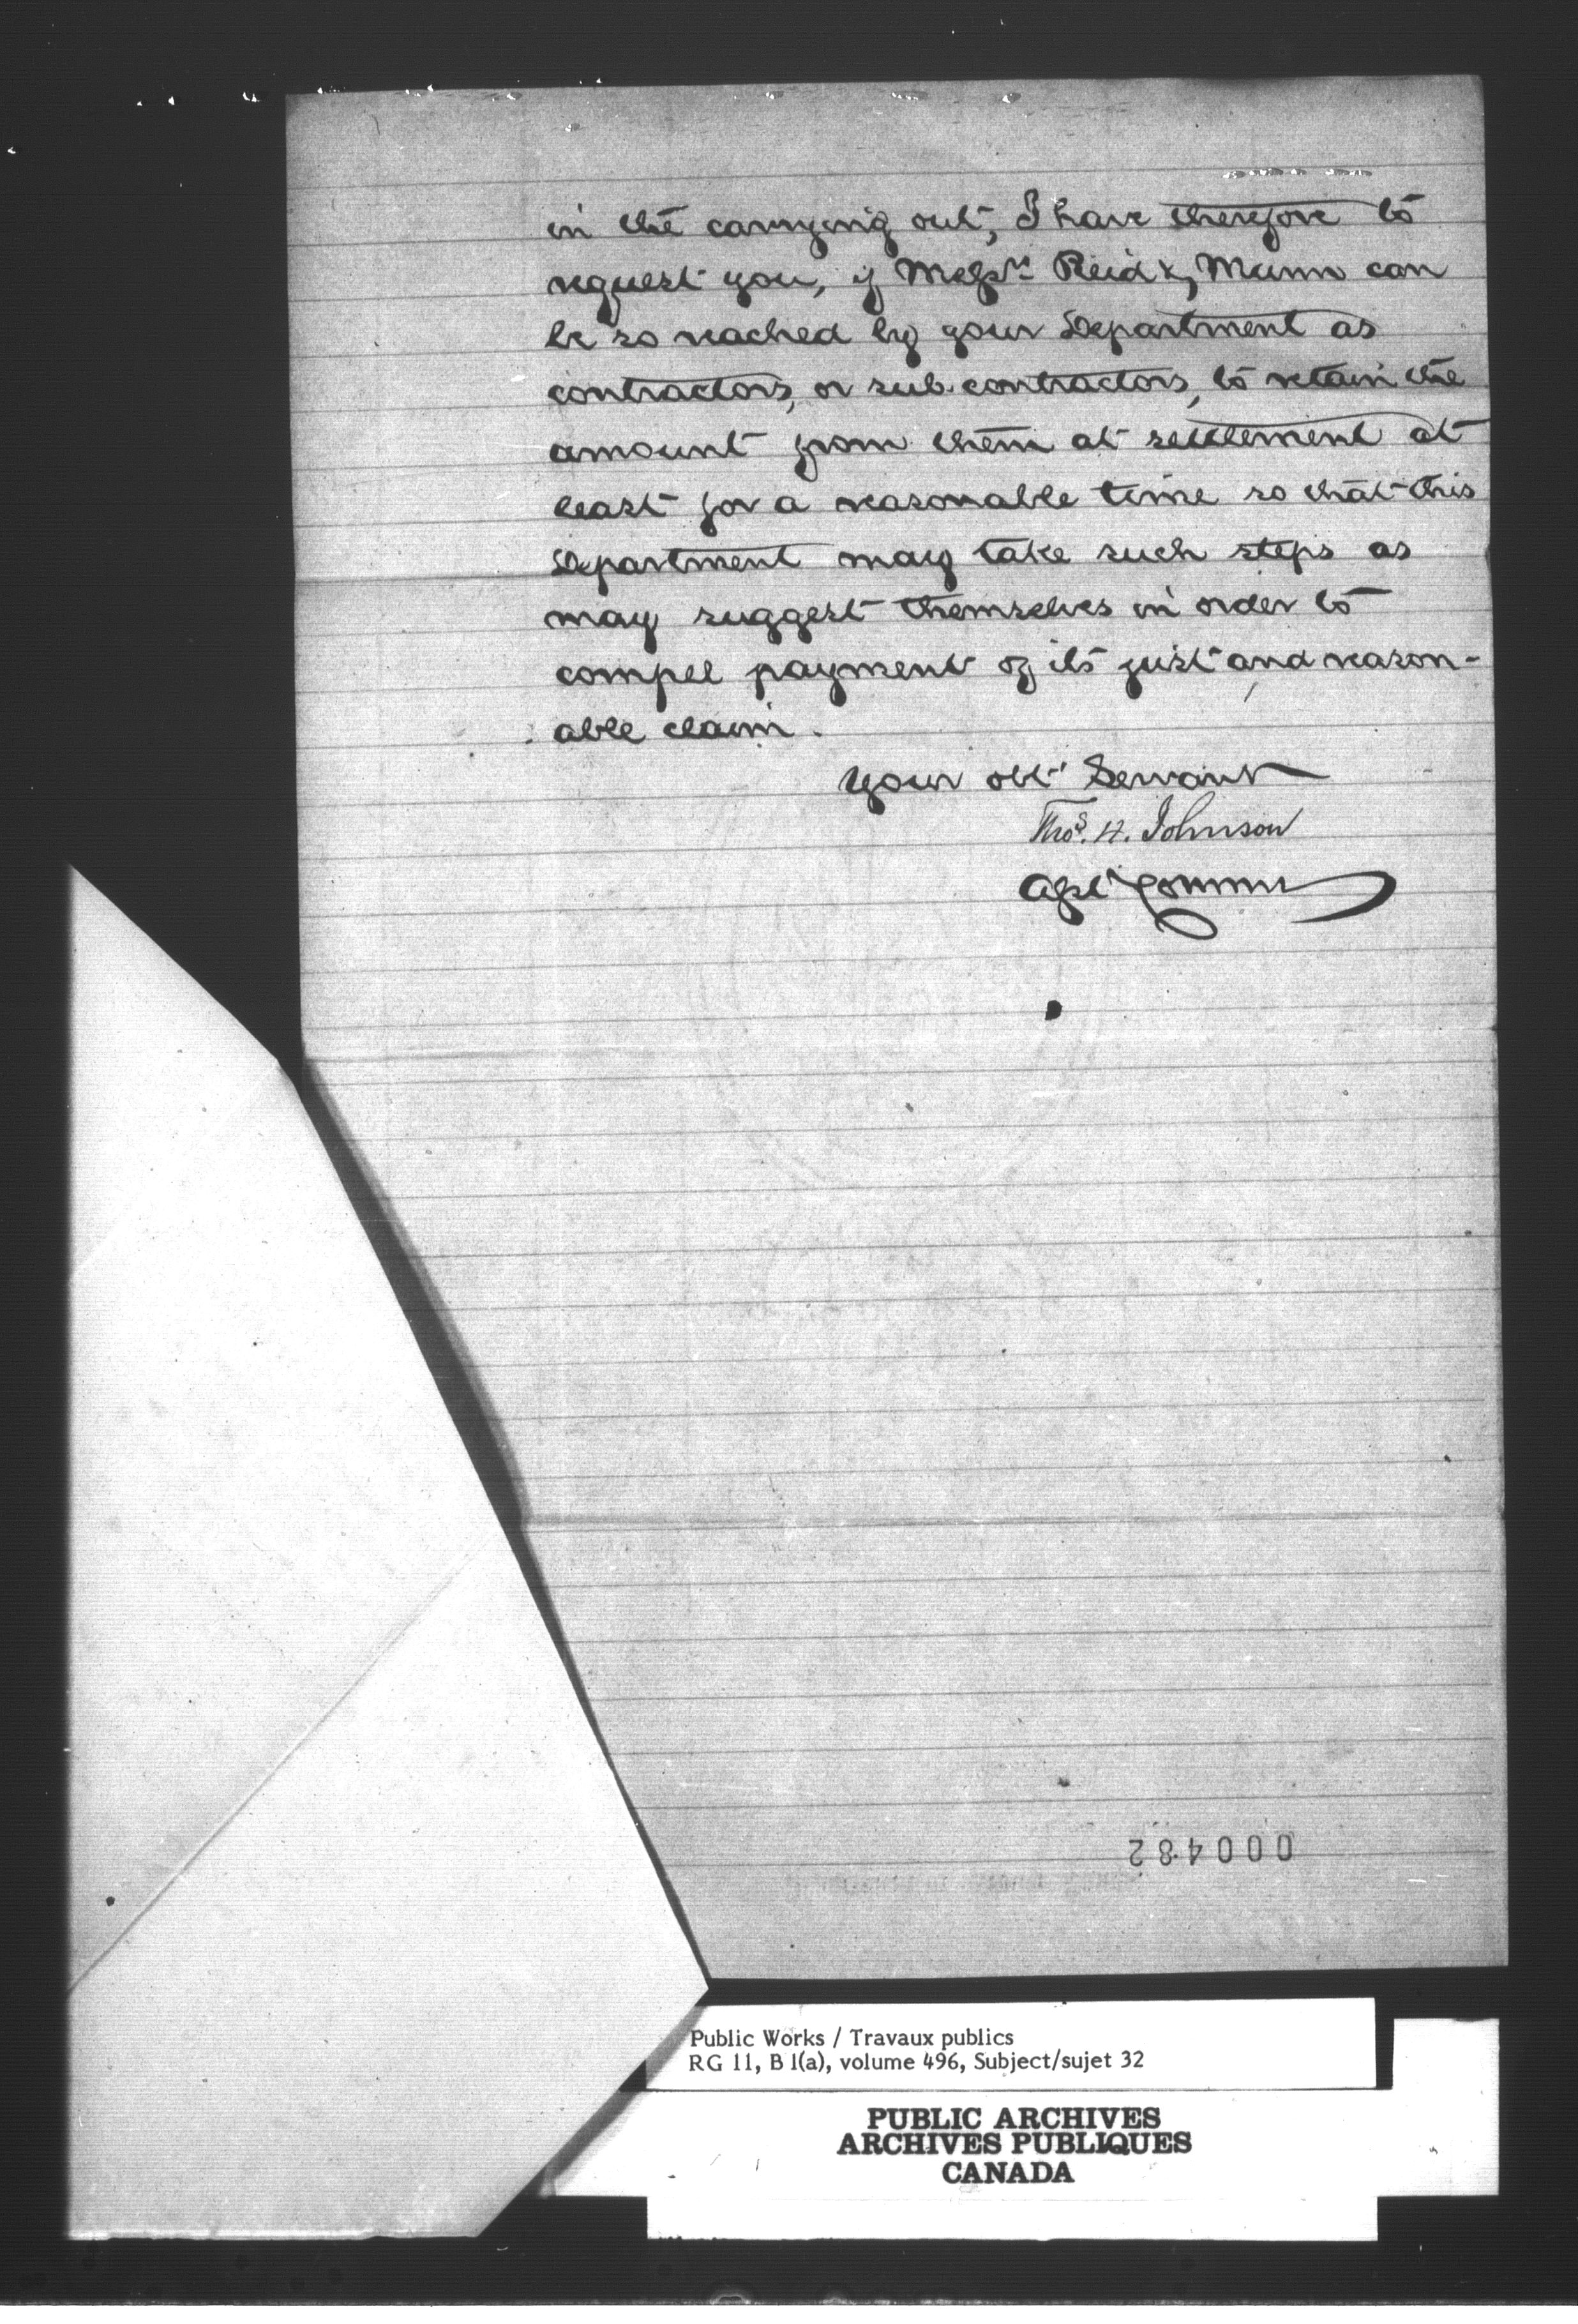 in the carrying out, I have therefore to
request you, if Messrs Reid & Munn can
be so reached by your Department as
contractors, or sub-contractors, to retain the
amount from them at settlement at
least for a reasonable time so that this
Department may take such steps as
may suggest themselves in order to
compel payment of its just and reason-
able claim.
Your obt Servant
Thos. H. Johnson
Asst Commr
000482
Public Works / Travaux publics
RG 11, B 1(a), volume 496, Subject/sujet 32
PUBLIC ARCHIVES
ARCHIVES PUBLIQUES
CANADA